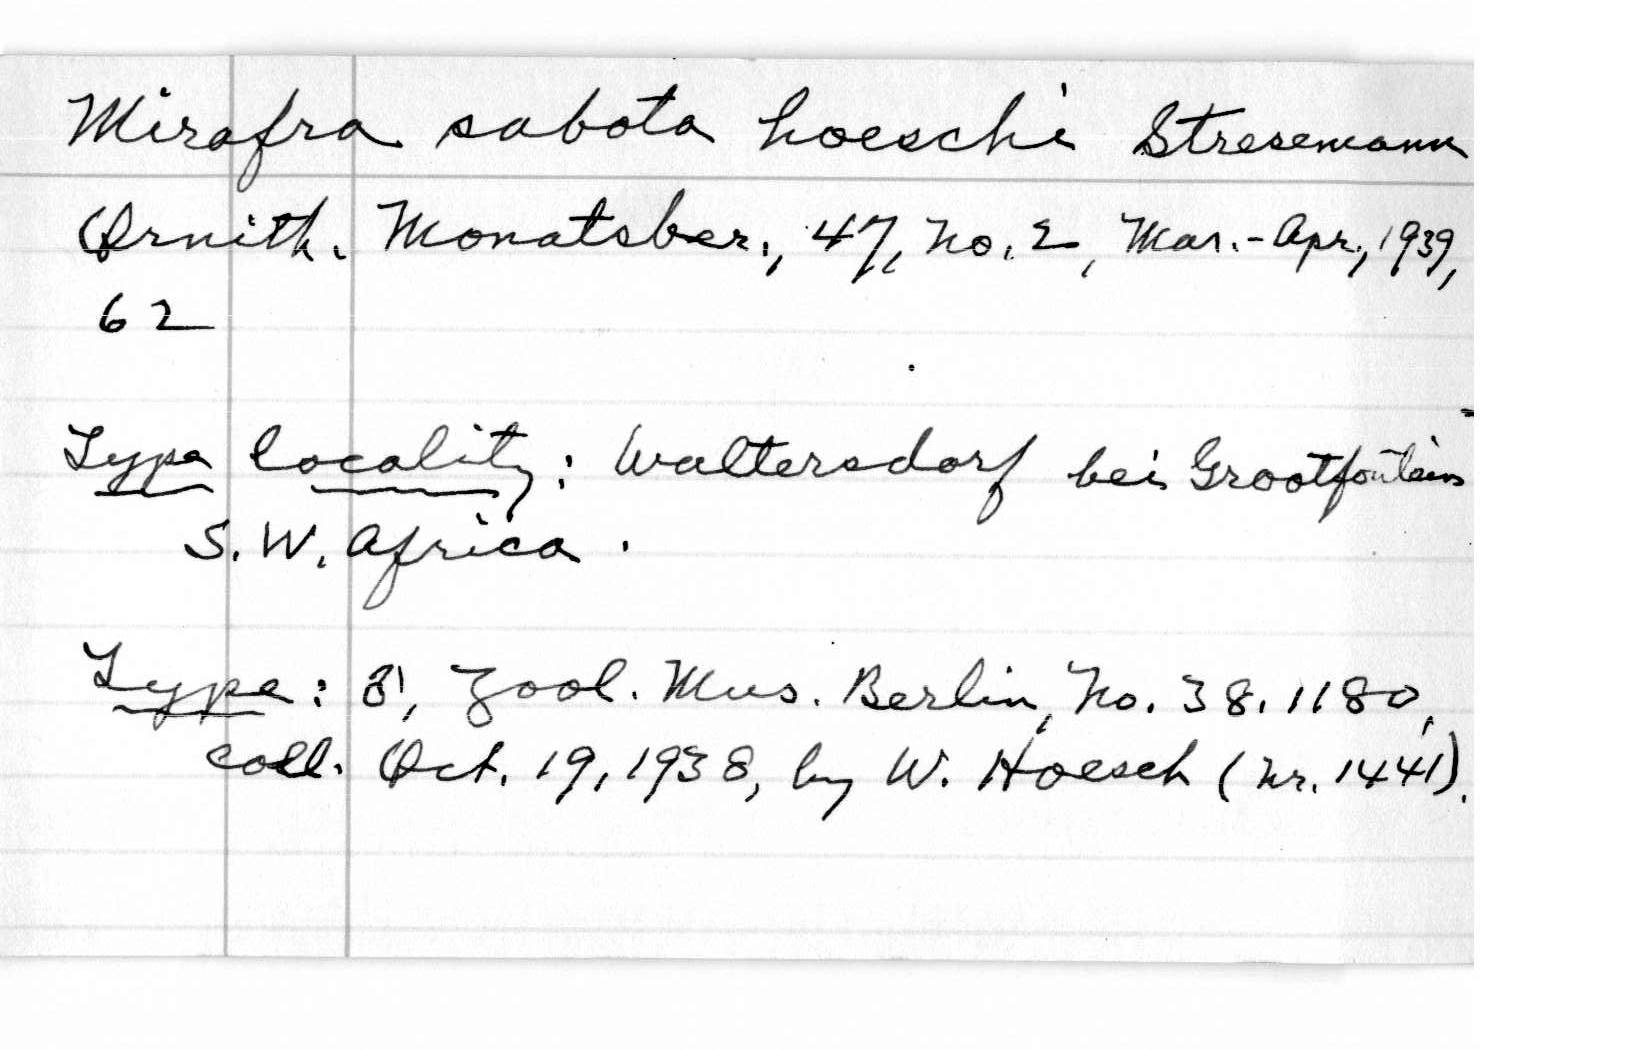 Mirafra sabota hoeschi Stresemann
Ornith. Monatsber., 47, No. 2, Mar.-Apr., 1939,
62
Type locality: Waltersdorf bei Grootfontein
S.W. Africa.
Type: ♂, Zool. Mus. Berlin, No. 38.1180,
coll. Oct. 19, 1938, by W. Hoesch (Nr. 1441).